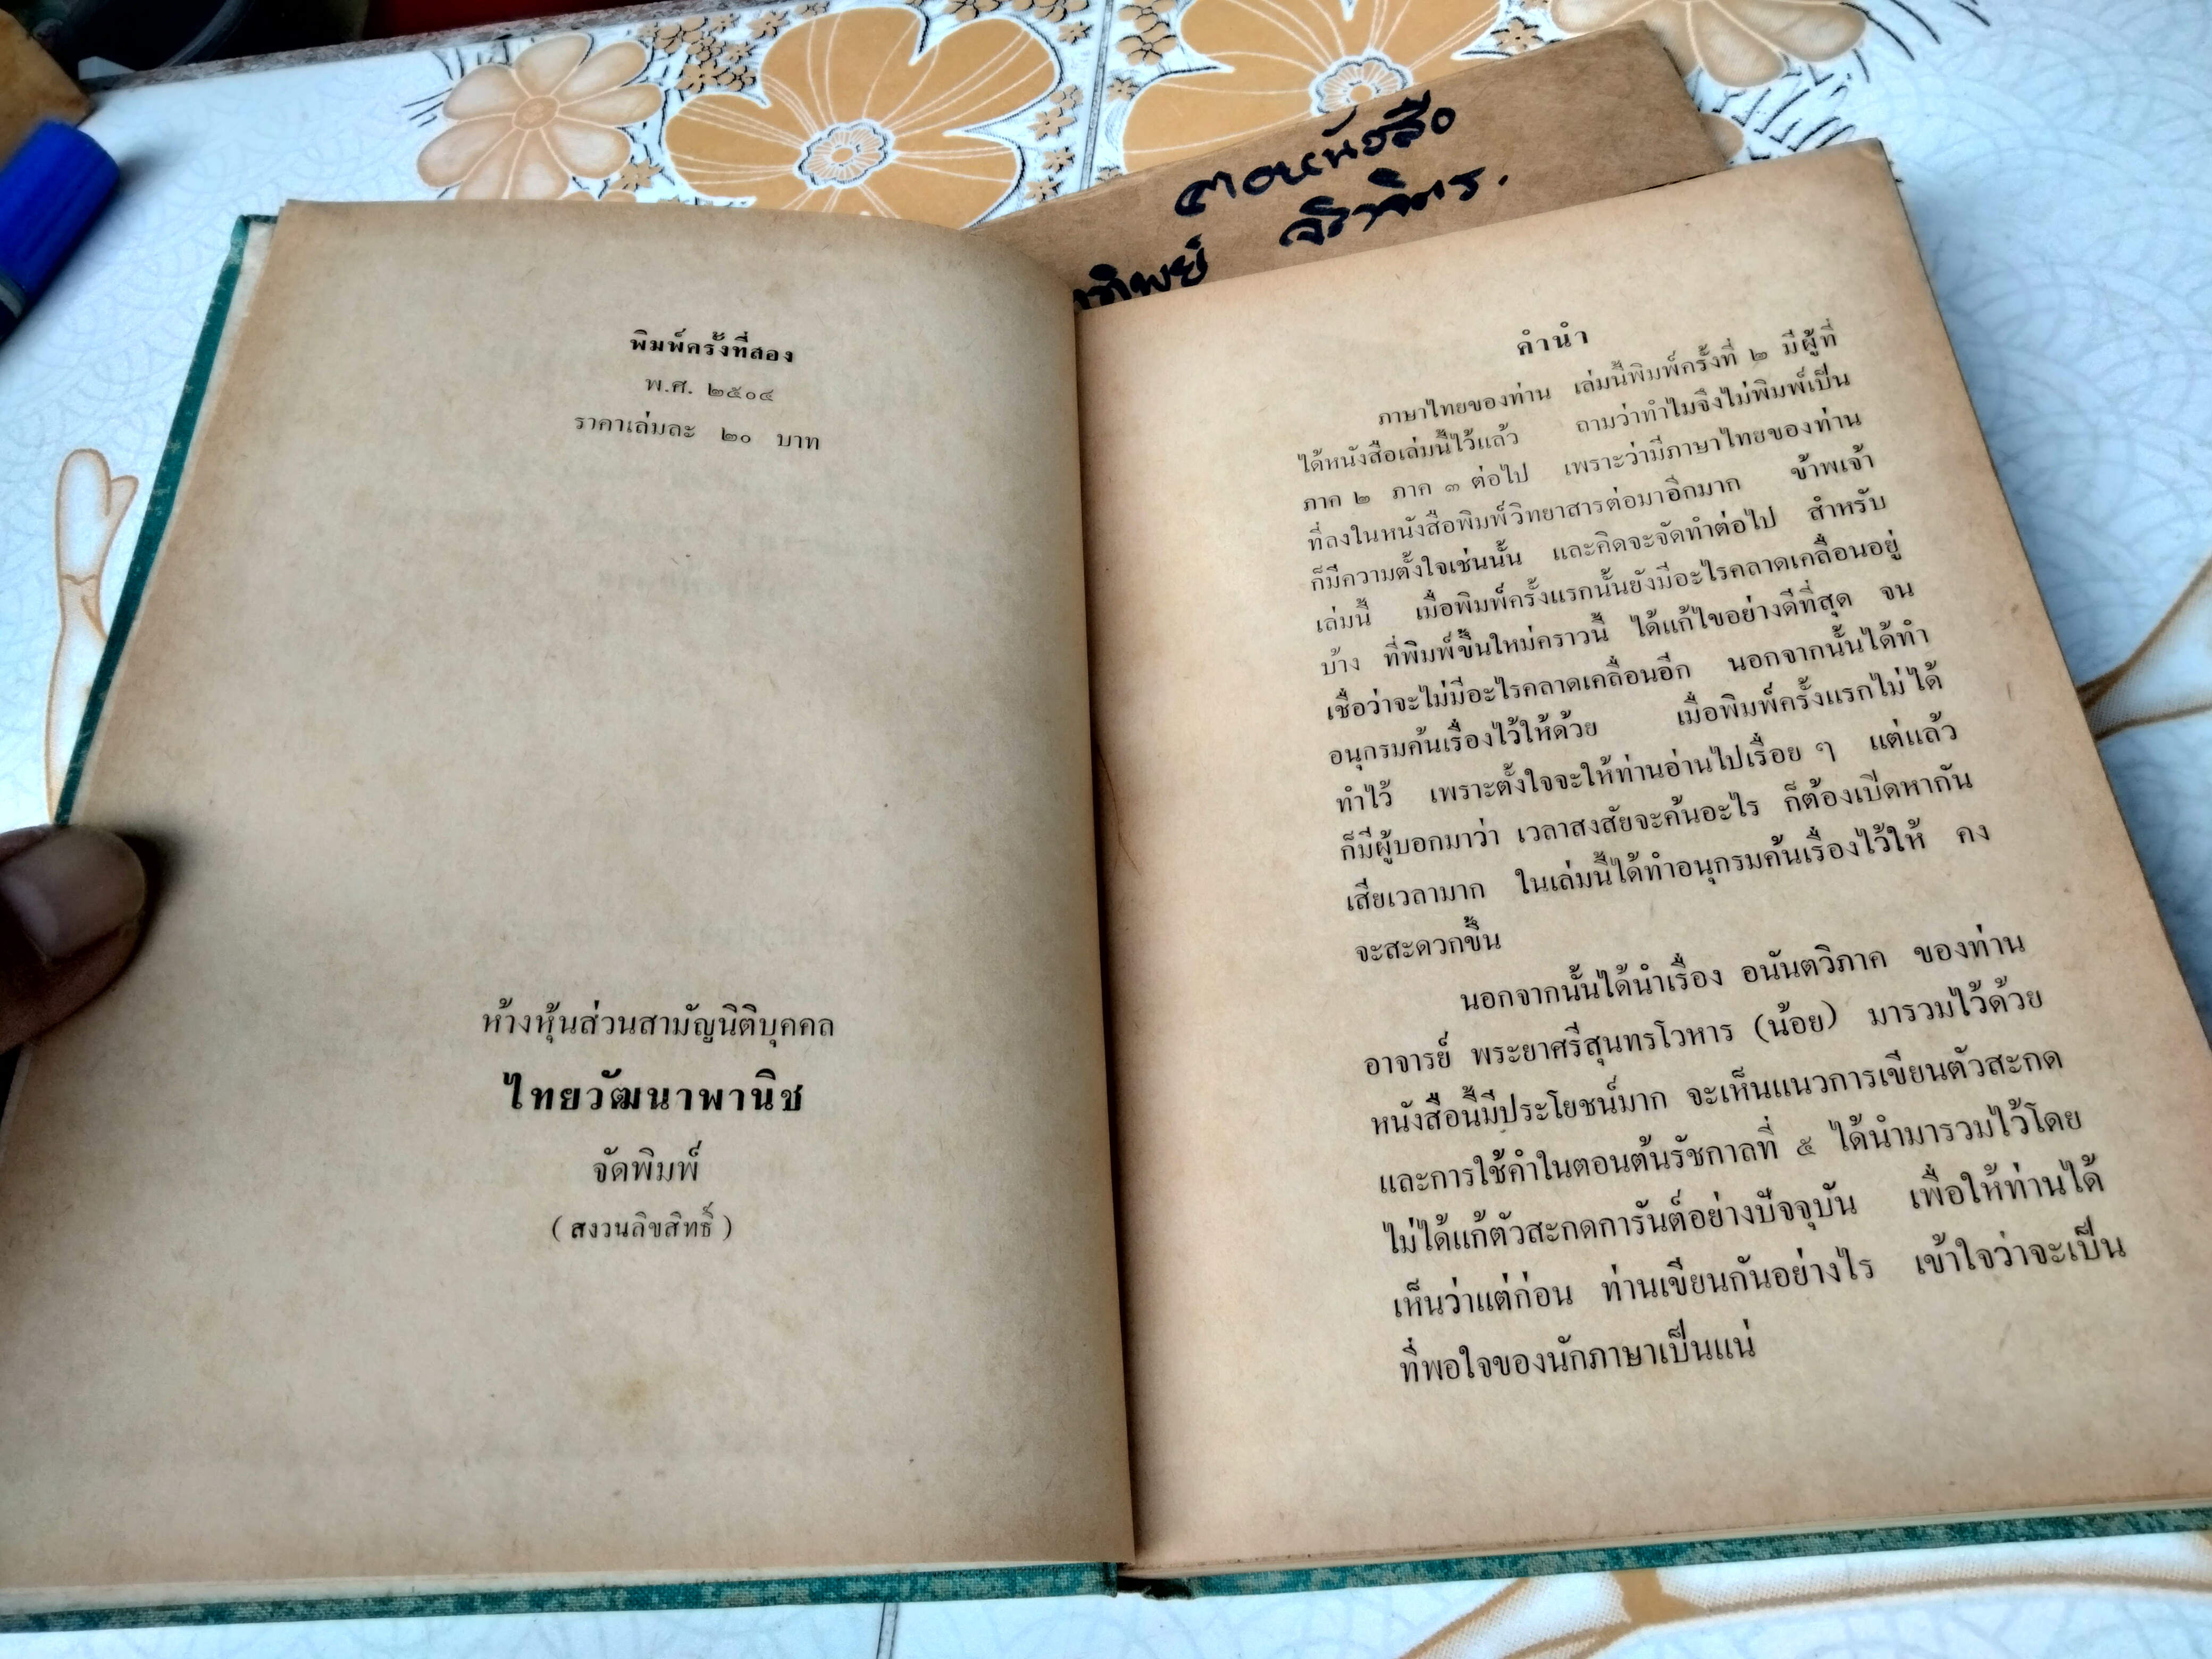 พิมพ์ครั้งที่สอง
พ.ศ. ๒๕๐๔
ราคาเล่มละ ๒๐ บาท
ห้างหุ้นส่วนสามัญนิติบุคคล
ไทยวัฒนาพานิช
จัดพิมพ์
(สงวนลิขสิทธิ์)
คำนำ
ภาษาไทยของท่าน เล่มนี้พิมพ์ครั้งที่ ๒ มีผู้ที่
ได้หนังสือเล่มนี้ไว้แล้ว ถามว่าทำไมจึงไม่พิมพ์เป็น
ภาค ๒ ภาค ๓ ต่อไป เพราะว่ามีภาษาไทยของท่าน
ที่ลงในหนังสือพิมพ์วิทยาสารต่อมาอีกมาก ข้าพเจ้า
ก็มีความตั้งใจเช่นนั้น และคิดจะจัดทำต่อไป สำหรับ
เล่มนี้ เมื่อพิมพ์ครั้งแรกนั้นยังมีอะไรคลาดเคลื่อนอยู่
บ้าง ที่พิมพ์ขึ้นใหม่คราวนี้ ได้แก้ไขอย่างดีที่สุด จน
เชื่อว่าจะไม่มีอะไรคลาดเคลื่อนอีก นอกจากนั้นได้ทำ
อนุกรมค้นเรื่องไว้ให้ด้วย เมื่อพิมพ์ครั้งแรกไม่ได้
ทำไว้ เพราะตั้งใจจะให้ท่านอ่านไปเรื่อย ๆ แต่แล้ว
ก็มีผู้บอกมาว่า เวลาสงสัยจะค้นอะไร ก็ต้องเปิดหากัน
เสียเวลามาก ในเล่มนี้ได้ทำอนุกรมค้นเรื่องไว้ให้ คง
จะสะดวกขึ้น
นอกจากนั้นได้นำเรื่อง อนันตวิภาค ของท่าน
อาจารย์ พระยาศรีสุนทรโวหาร (น้อย) มารวมไว้ด้วย
หนังสือนี้มีประโยชน์มาก จะเห็นแนวการเขียนตัวสะกด
และการใช้คำในตอนต้นรัชกาลที่ ๕ ได้นำมารวมไว้โดย
ไม่ได้แก้ตัวสะกดการันต์อย่างปัจจุบัน เพื่อให้ท่านได้
เห็นว่าแต่ก่อน ท่านเขียนกันอย่างไร เข้าใจว่าจะเป็น
ที่พอใจของนักภาษาเป็นแน่